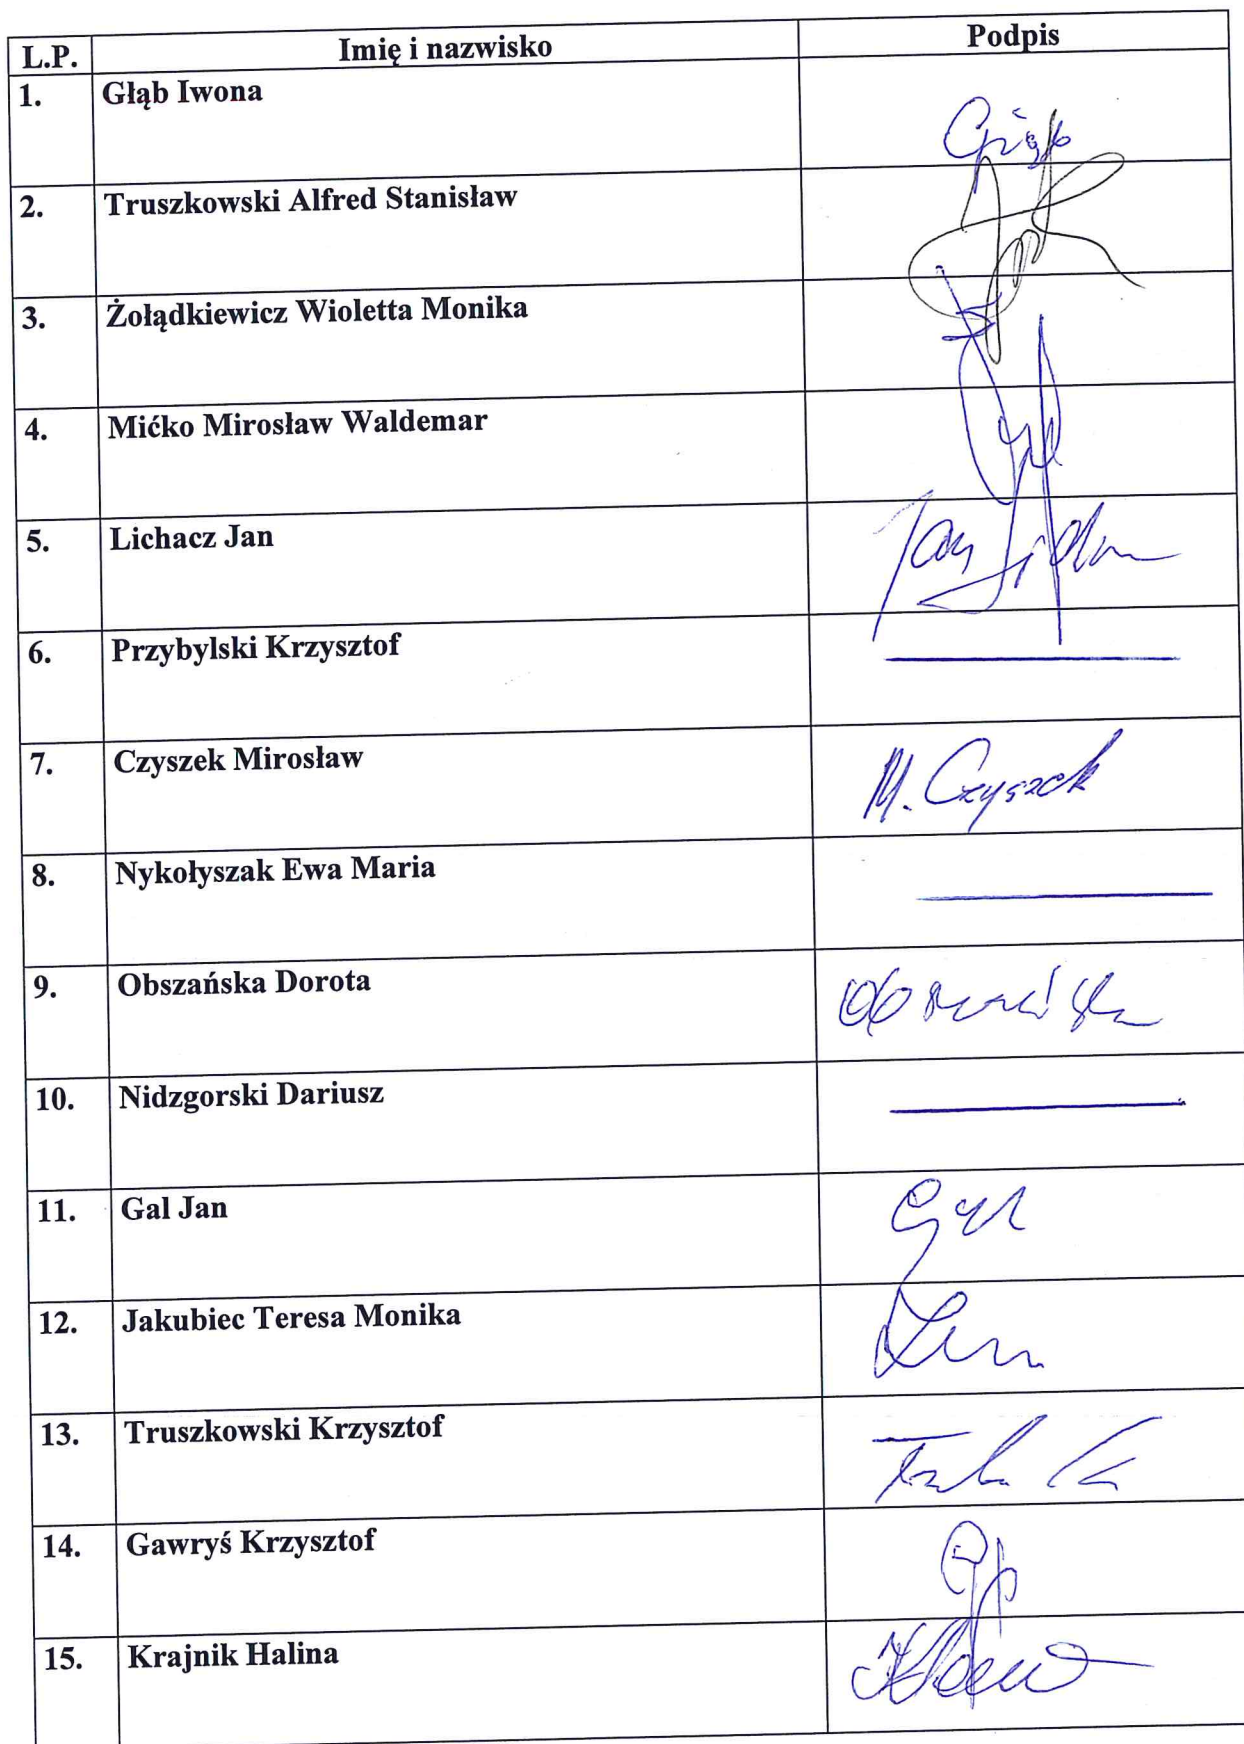 L.P. Imię i nazwisko Podpis
1. Głąb Iwona
2. Truszkowski Alfred Stanisław
3. Żołądkiewicz Wioletta Monika
4. Mićko Mirosław Waldemar
5. Lichacz Jan Jan
6. Przybylski Krzysztof
7. Czyszek Mirosław M. Czyszek
8. Nykołyszak Ewa Maria
9. Obszańska Dorota
10. Nidzgorski Dariusz
11. Gal Jan Gal
12. Jakubiec Teresa Monika
13. Truszkowski Krzysztof
14. Gawryś Krzysztof
15. Krajnik Halina